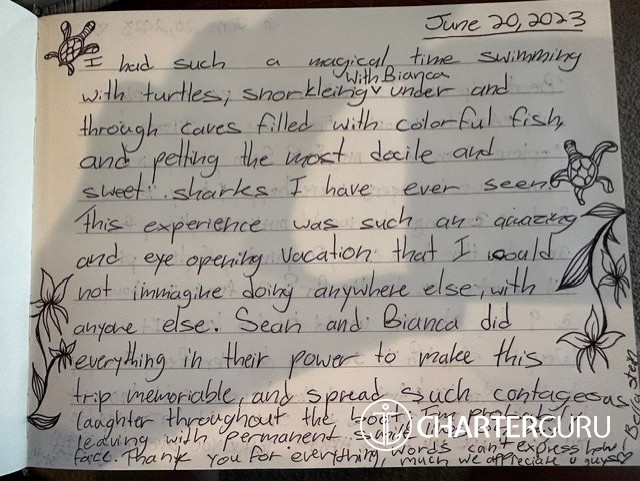 June 20, 2023
I had such a magical time swimming
with Bianca
with turtles, snorkleing ˅ under and
through caves filled with colorful fish,
and petting the most docile and
sweet sharks I have ever seen!
This experience was such an amazing
and eye opening vacation that I would
not immagine doing anywhere else, with
anyone else. Sean and Bianca did
everything in their power to make this
trip memoriable, and spread such contageous
laughter throughout the boat I'm
leaving with permanent smile
face. Thank you for everything, words can't express how
much we appreciate u guys
CHARTERGURU